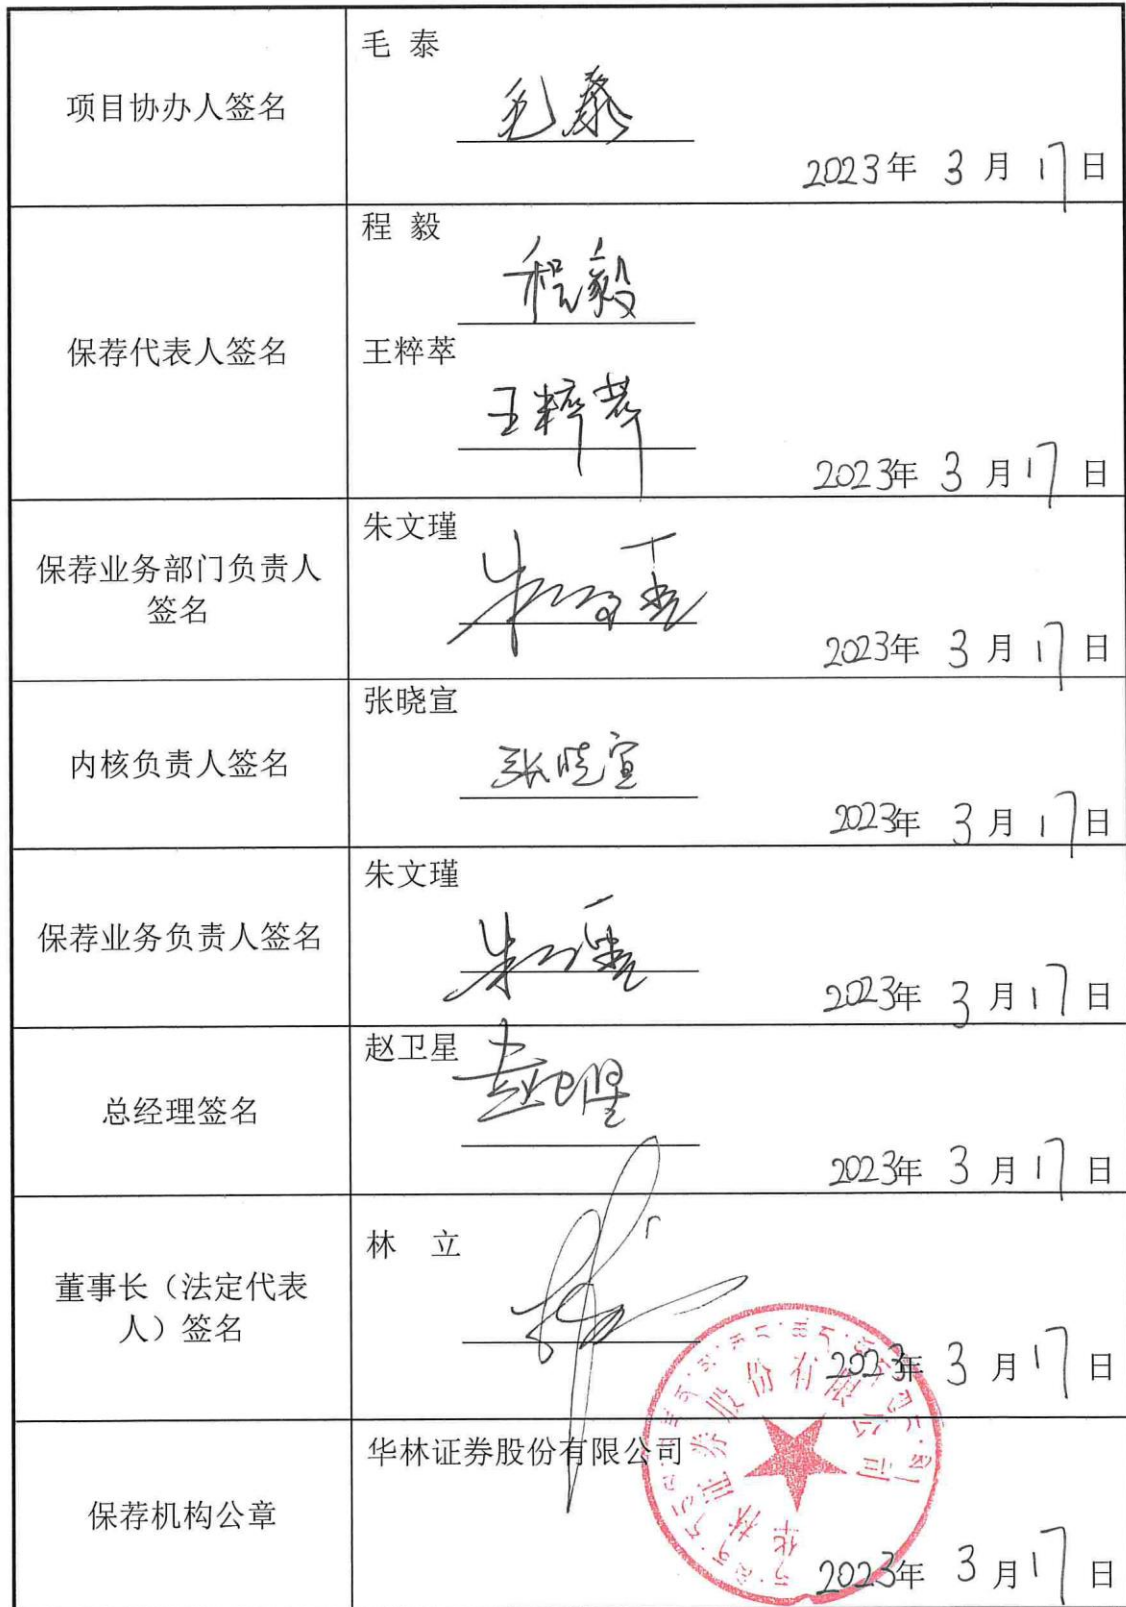 项目协办人签名
毛 泰
毛泰
2023年 3 月 17 日
保荐代表人签名
程 毅
程毅
王粹萃
王粹萃
2023年 3 月 17 日
保荐业务部门负责人
签名
朱文瑾
朱文瑾
2023年 3 月 17 日
内核负责人签名
张晓宣
张晓宣
2023年 3 月 17 日
保荐业务负责人签名
朱文瑾
朱文瑾
2023年 3 月 17 日
总经理签名
赵卫星
赵卫星
2023年 3 月 17 日
董事长（法定代表
人）签名
林 立
2023年 3 月 17 日
保荐机构公章
华林证券股份有限公司
华林证券股份有限公司
2023年 3 月 17 日